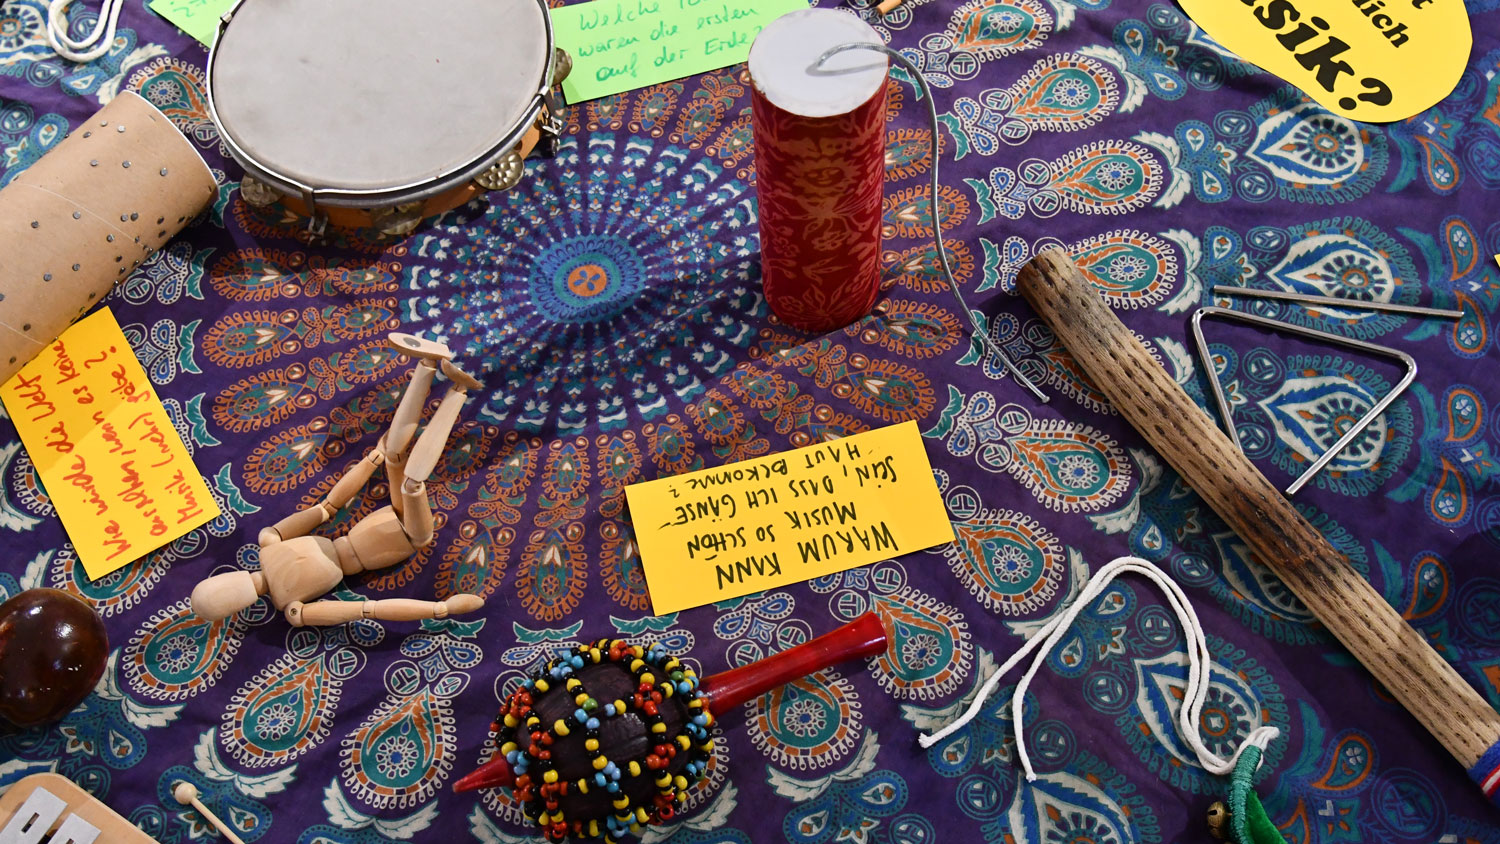 Welche
waren die ersten
auf der Erde?
t
lich
usik?
Wie würde die Welt
aussehen, wenn es keine
Musik (mehr) gäbe?
WARUM KANN
MUSIK SO SCHÖN
SEIN, DASS ICH GÄNSE-
HAUT BEKOMME?